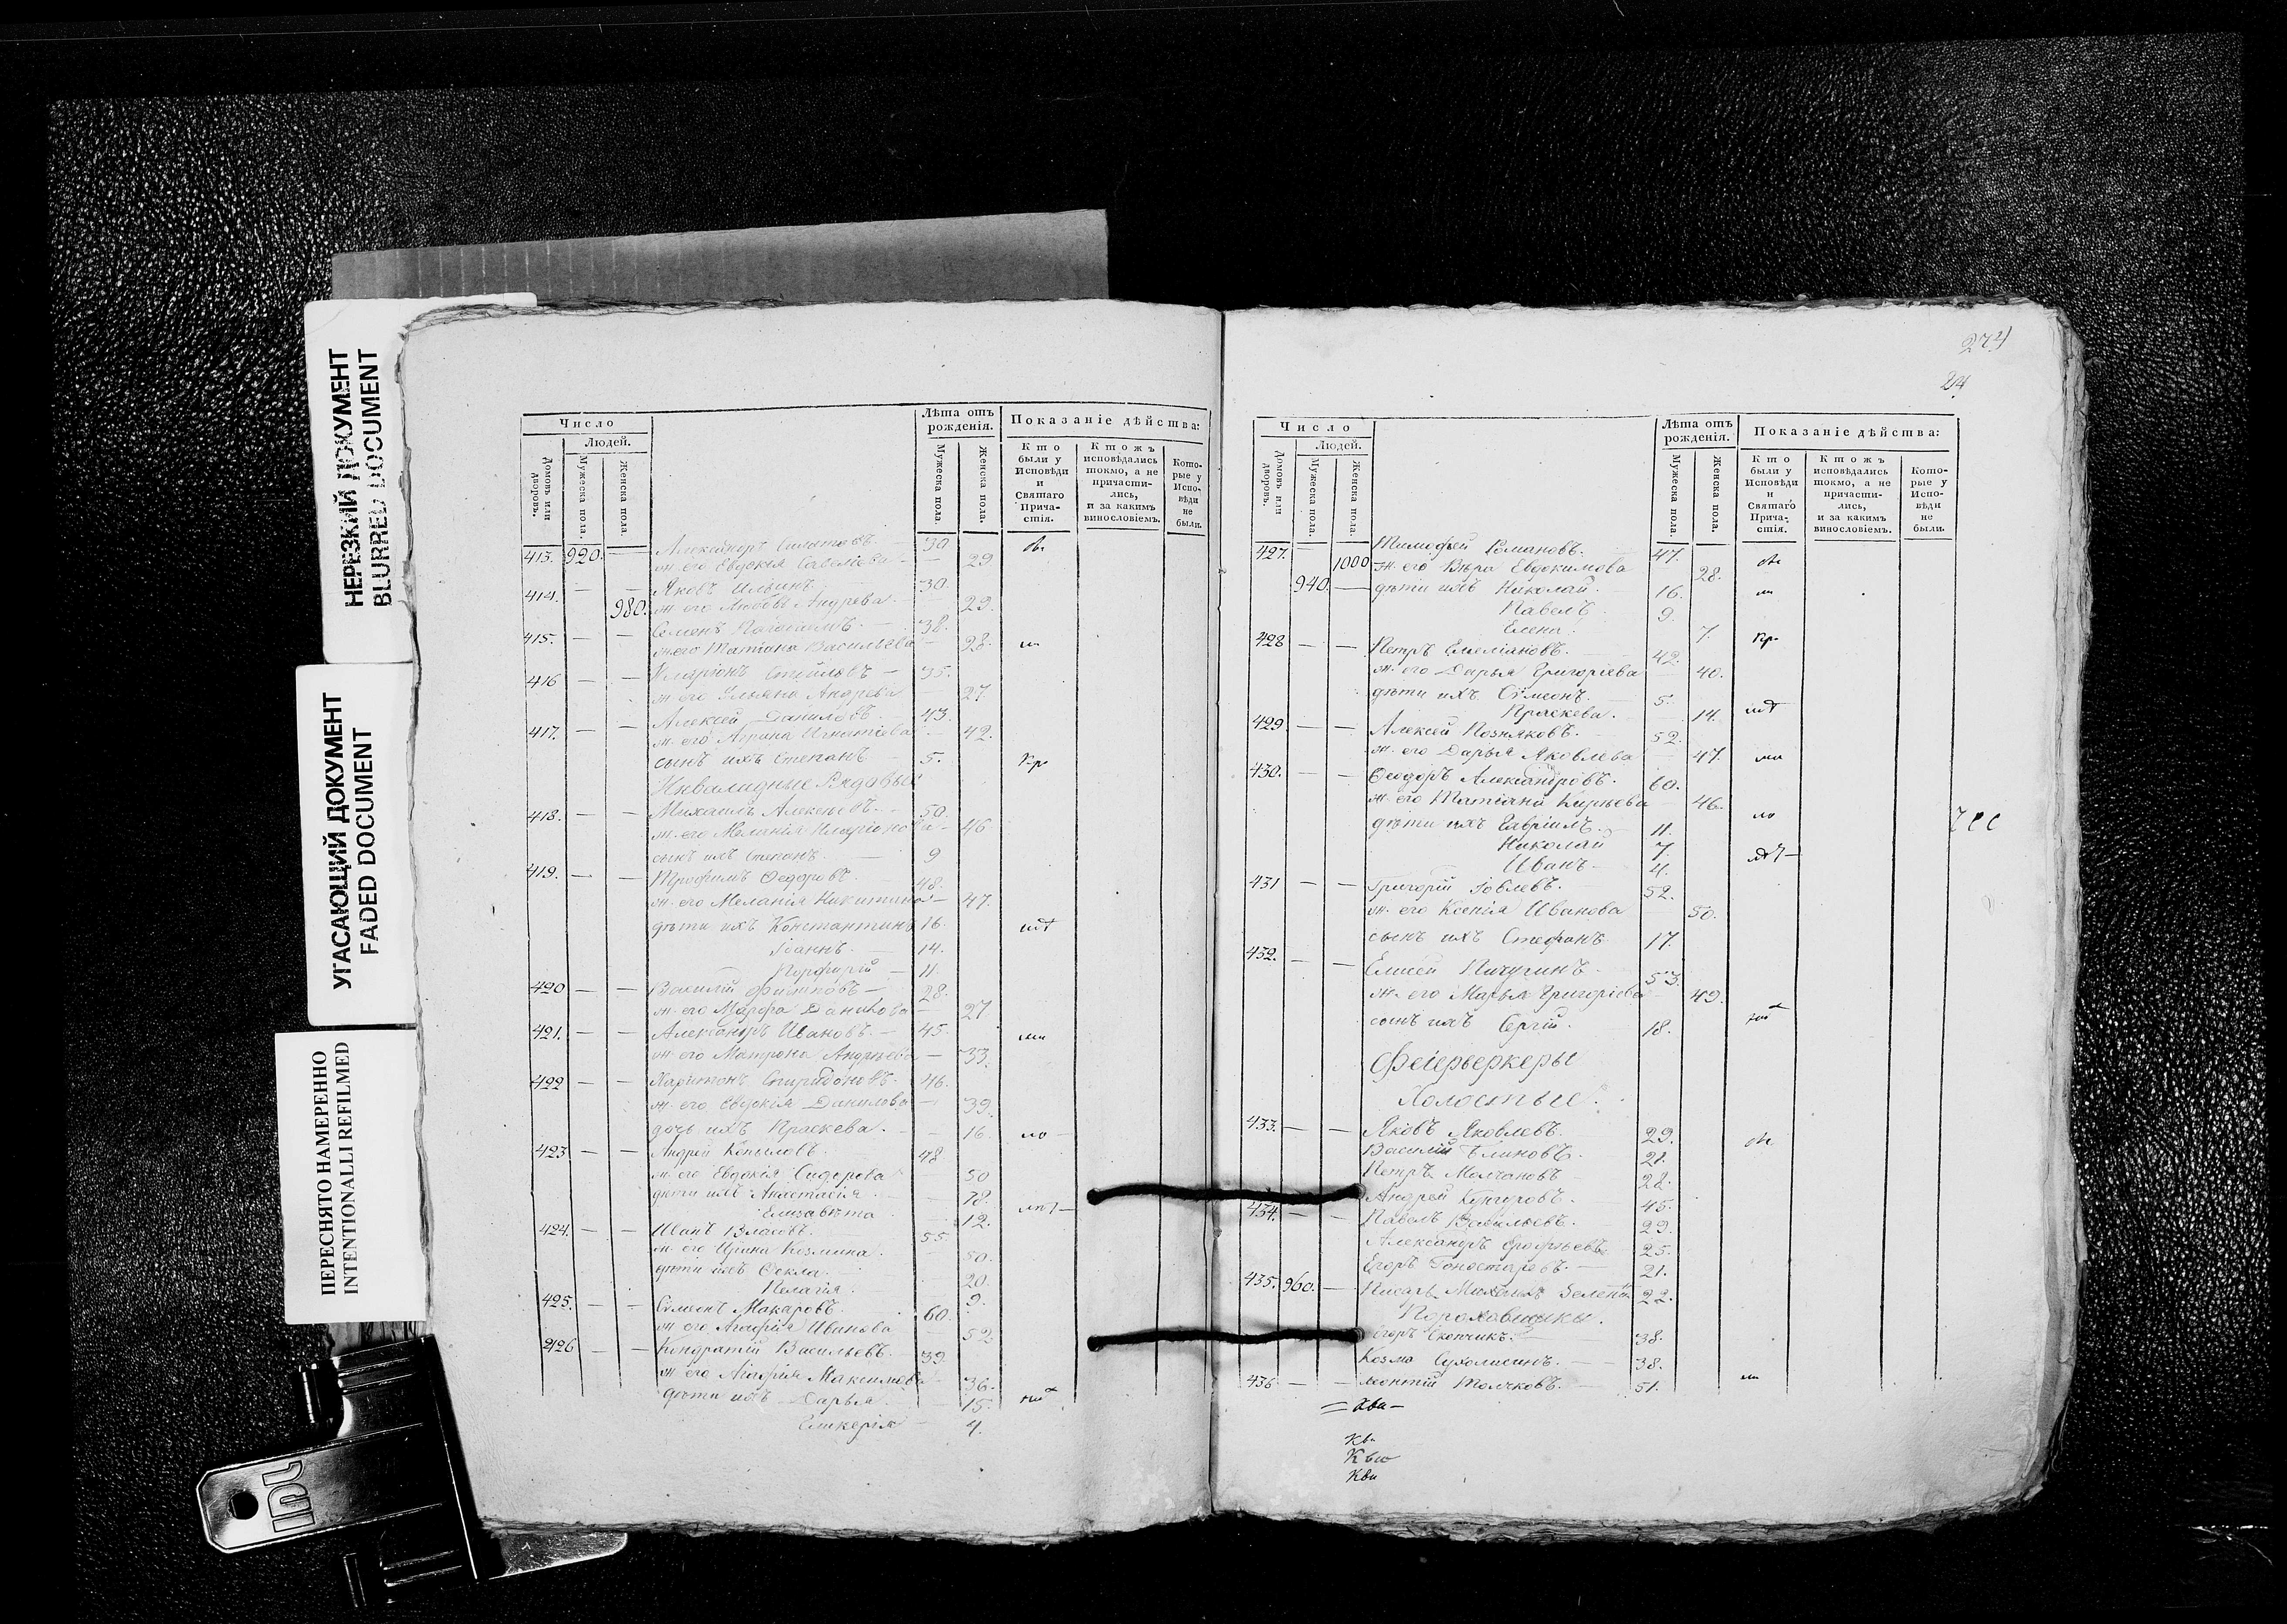 НЕРЕЗКИЙ ДОКУМЕНТ
BLURRED DOCUMENT
УГАСАЮЩИЙ ДОКУМЕНТ
FADED DOCUMENT
ПЕРЕСНЯТО НАМЕРЕННО
INTENTIONALLI REFILMED
Число
Людей.
Домовъ или дворовъ.
Мужеска пола.
Женска пола.
Лѣта отъ рожденія.
Мужеска пола.
Женска пола.
Показаніе дѣйства:
Кто были у Исповѣди и Святаго Прича-стія.
Ктожъ исповѣдались токмо, а не причасти-лись, и за какимъ винословіемъ.
Кото-рые у Испо-вѣди не были.
413. 920. — Александръ 30
ж. его Евдокія Савелиева — 29
414. — — Яковъ Ильинъ 30.
980. ж. его Любовь Андрева 29.
415. — — Семенъ 38.
ж. его Татіана Васильева — 28.
416 — — Иларіонъ — 35.
ж. его Ульяна Андрева 27
417. — — Алексей Даниловъ 43.
ж. его Игнатіева 42.
сынъ ихъ Степанъ 5.
Инвалидные Рядовые
418. — — Михаилъ Алексеевъ — 50.
ж. его Меланія Иларіонова 46
сынъ ихъ Степанъ — 9
419. — — Трофимъ Ѳедоровъ 48.
ж. его Меланія Никитина — 47.
дѣти ихъ Константинъ 16.
Іоаннъ 14.
Порфирій — 11.
420 — — Василій — 28.
ж. его Марфа Данилова — 27
421. — — Александръ Ивановъ — 45.
ж. его Матрона Андреева — 33.
422 — — Харитонъ Спиридоновъ. 46.
ж. его Евдокія Данилова — 39.
дочь ихъ Праскева. — 16.
423 — — Андрей Копыловъ. 48
ж. его Евдокія Сидорова 50
дѣти ихъ Анастасія 18.
Елизавѣта 12.
424. — — Иванъ Власовъ. 55.
ж. его Ирина Козмина. 50.
дѣти ихъ Ѳекла 20.
Пелагія. 9.
425. — — Сѵмеонъ Макаровъ. 60.
ж. его Агафія Иванова 52
426 — — Кондратій Васильевъ. 39.
ж. его Агафія Максимова 36.
дѣти ихъ Дарья. 15.
Гликерія 4.
274
24
Число
Людей.
Домовъ или дворовъ.
Мужеска пола.
Женска пола.
Лѣта отъ рожденія.
Мужеска пола.
Женска пола.
Показаніе дѣйства:
Кто были у Исповѣди и Святаго Прича-стія.
Ктожъ исповѣдались токмо, а не причасти-лись, и за какимъ винословіемъ.
Кото-рые у Испо-вѣди не были.
427. — Тимофей Романовъ. 47.
1000 ж. его Вѣра Евдокимова 28.
940. — дѣти ихъ Николай. 16.
Павелъ 9.
Елена. 7.
428 — — Петръ Емеліановъ. 42.
ж. его Дарья Григоріева 40.
дѣти ихъ Сѵмеонъ. 5.
Праскева. 14.
429 — — Алексей Позняковъ. 52.
ж. его Дарья Яковлева 47.
430. — — Ѳеодоръ Александровъ. 60.
ж. его Татіана 46.
дѣти ихъ Гавріилъ. 11.
Николай 7.
Иванъ 4.
431 — — Григорій Іовлевъ. 52.
ж. его Ксенія Иванова 50.
сынъ ихъ Стефанъ. 17.
432. — — Елисей Пичугинъ. 53.
ж. его Марья Григоріева 49.
сынъ ихъ Сергій. 18.
Фейерверкеры
Холостые.
433. — — Яковъ Яковлевъ 29.
Василій Блиновъ. 21.
Петръ Молчановъ 28.
Андрей Кунгуровъ. 45.
434. — — Павелъ Васильевъ. 29.
Александръ Ерофѣевъ 25.
Егоръ Гоностаревъ. 21.
435. 960. — Писарь Михаилъ 22.
Пороховщики.
Егоръ Скопчикъ. 38.
Козма 38.
436 — — Леонтій Толчковъ. 51.